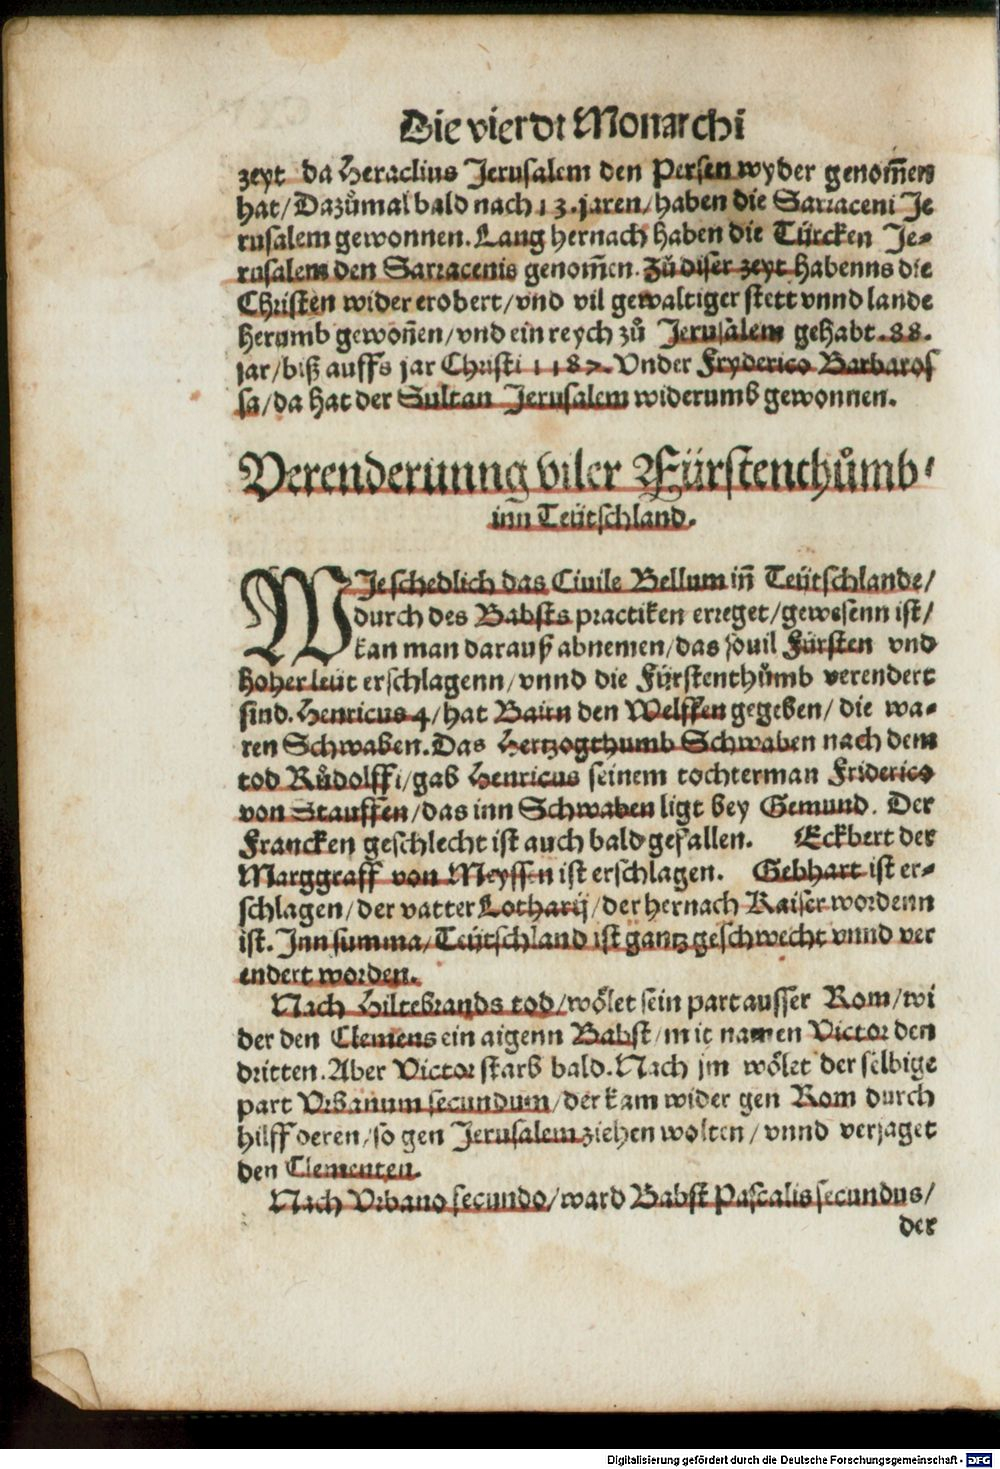 Die vierdt Monarchi
zeyt da Heraclius Jerusalem den Persen wyder genom̄en
hat/Dazůmal bald nach 13. jaren/haben die Sarraceni Je
rusalem gewonnen. Lang hernach haben die Türcken Je-
rusalem den Sarracenis genom̄en. Zů diser zeyt habenns die
Christen wider erobert/vnd vil gewaltiger stett vnnd lande
herumb gewon̄en/vnd ein reych zů Jerusalem gehabt. 88.
jar/biß auffs jar Christi 1187. Vnder Fryderico Barbaros
sa/da hat der Sultan Jerusalem widerumb gewonnen.
Verenderunng viler Fürstenthůmb/
inn̄ Teütschland.
WJe schedlich das Ciuile Bellum in̄ Teütschlande/
durch des Babsts practiken erreget/gewesenn ist/
kan man darauß abnemen/das souil Fürsten vnd
hoher leüt erschlagenn/vnnd die Fürstenthůmb verendert
sind. Henricus 4/hat Bairn den Welffen gegeben/ die wa-
ren Schwaben. Das Hertzogthumb Schwaben nach dem
tod Růdolffi/gab Henricus seinem tochterman Friderico
von Stauffen/das inn Schwaben ligt bey Gemund. Der
Francken geschlecht ist auch bald gefallen. Eckbert der
Marggraff von Meyssen ist erschlagen. Gebhart ist er-
schlagen/der vatter Lotharij/der hernach Kaiser wordenn
ist. Jnn summa/Teütschland ist gantz geschwecht vnnd ver
endert worden.
Nach Hiltebrands tod/wölet sein part ausser Rom/wi
der den Clemens ein aigenn Babst/mit namen Victor den
dritten. Aber Victor starb bald. Nach jm wölet der selbige
part Vrbanum secundum/der kam wider gen Rom durch
hilff deren/so gen Jerusalem ziehen wolten/vnnd verjaget
den Clementen.
Nach Vrbano secundo/ward Babst Pascalis secundus/
der
Digitalisierung gefördert durch die Deutsche Forschungsgemeinschaft - DFG